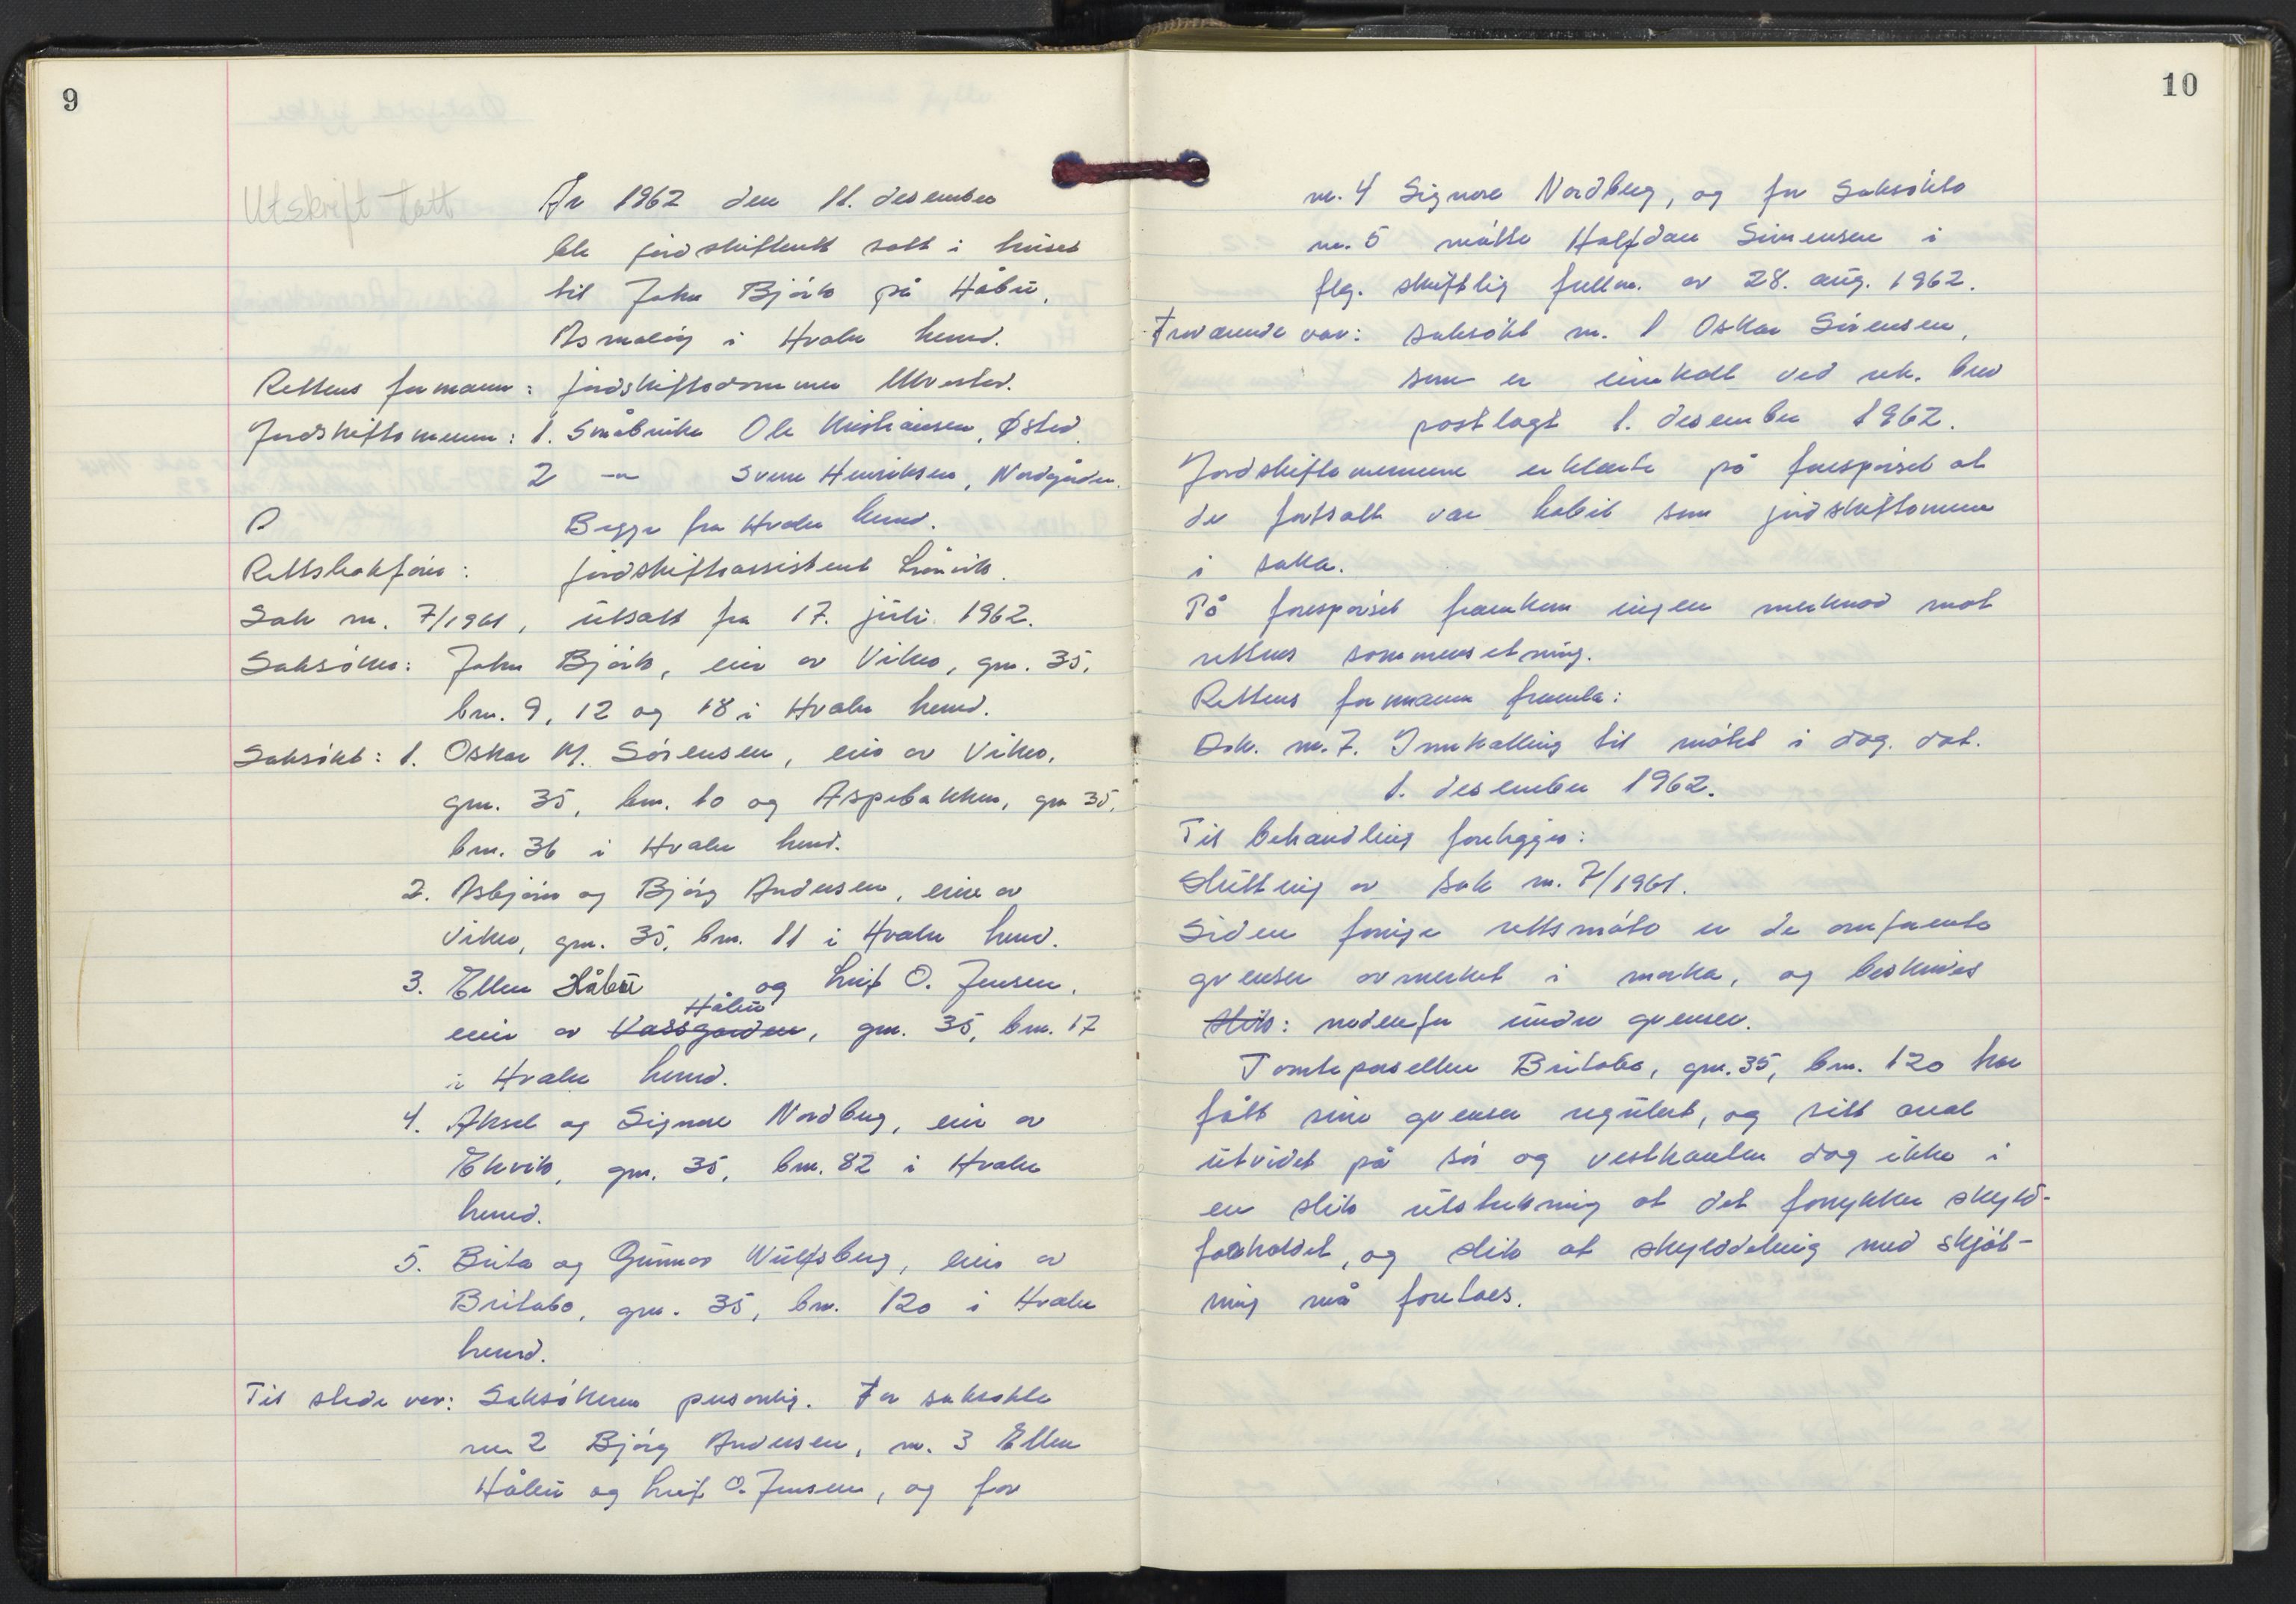 9
Utskrift tatt
År 1962 den 11. desember
ble jordskifterett satt i huset
til John Bjørk på Håbu,
Asmaløy i Hvaler herred.
Rettens formann: jordskiftedommer Utvester.
Jordskiftemenn: 1. Småbruker Ole Kristiansen, Østed.
2 —"— Svenn Henriksen, Nordgården.
Begge fra Hvaler herred.
Rettsbokfører: jordskifteassistent Lrånvik.
Sak nr. 7/1961, utsatt fra 17. juli 1962.
Saksøker: John Bjørk, eier av Viker, gnr. 35,
bnr. 9, 12 og 18 i Hvaler herred.
Saksøkt: 1. Oskar M. Sørensen, eier av Viker,
gnr. 35, bnr. 10 og Aspebakken, gnr 35,
bnr. 36 i Hvaler herred.
2. Asbjørn og Bjørg Andersen, eiere av
Viker, gnr. 35, bnr. 11 i Hvaler herred.
3. Ellen Håbu og Leif O. Jensen,
Håbu
eier av Vassgarden, gnr. 35, bnr. 17
i Hvaler herred.
4. Aksel og Signore Nordberg, eier av
Ekvik, gnr. 35, bnr. 82 i Hvaler
herred.
5. Brita og Gunnar Wulfsberg, eier av
Britabo, gnr. 35, bnr. 120 i Hvaler
herred.
Til stede var: Saksøkeren personlig. For saksøkte
nr. 2 Bjørg Andersen, nr. 3 Ellen
Håbu og Leif O. Jensen, og for
10
nr. 4 Signore Nordberg, og for Saksøkte
nr. 5 møtte Halfdan Simensen i
flg. skriftlig fullm. av 28. aug. 1962.
Fraværende var: saksøkt nr. 1 Oskar Sørensen,
som er innkalt ved rek. brev
postlagt 1. desember 1962.
Jordskiftemennene erklærte på forespørsel at
de fortsatt var habil som jordskiftemenn
i saka.
På forespørsel framkom ingen merknad mot
rettens sammensetning.
Rettens formann framla:
Dok. nr. 7. Innkalling til møtet i dag. dat.
1. desember 1962.
Til behandling foreligger:
Slutting av sak nr. 7/1961.
Siden forrige rettsmøte er de omforente
grenser avmerket i marka, og beskrives
slik: nedenfor under grenser.
Tomteparsellen Britabo, gnr. 35, bnr. 120 har
fått sine grenser regulert, og sitt areal
utvidet på sør og vestkanten dog ikke i
en slik utstrekning at det forrykker skyld-
forholdet, og slik at skylddeling med skjøt-
ning må foretaes.